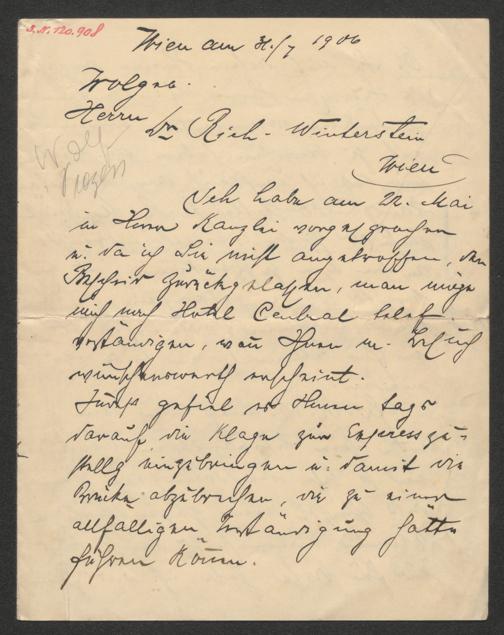 S. N. 120.908
Wien am 31./7 1906
Wolgeb.
Herrn
Dr Rich. Winterstein
Wien
Wolf
Prozess
Ich habe am 22. Mai
in Ihrer Kanzlei vorgesprochen
u. da ich Sie nicht angetroffen, den
Bescheid zurückgelassen, man möge
mich nach Hotel Central telef.
verständigen, wan Ihnen m. Besuch
wünschenswerth erscheint.
Indeß gefiel es Ihnen tags
darauf die Klage zur Expresszu-
stellg einzubringen u. damit die
Brücke abzubrechen, die zu einer
allfälligen Verständigung hätte
führen können.